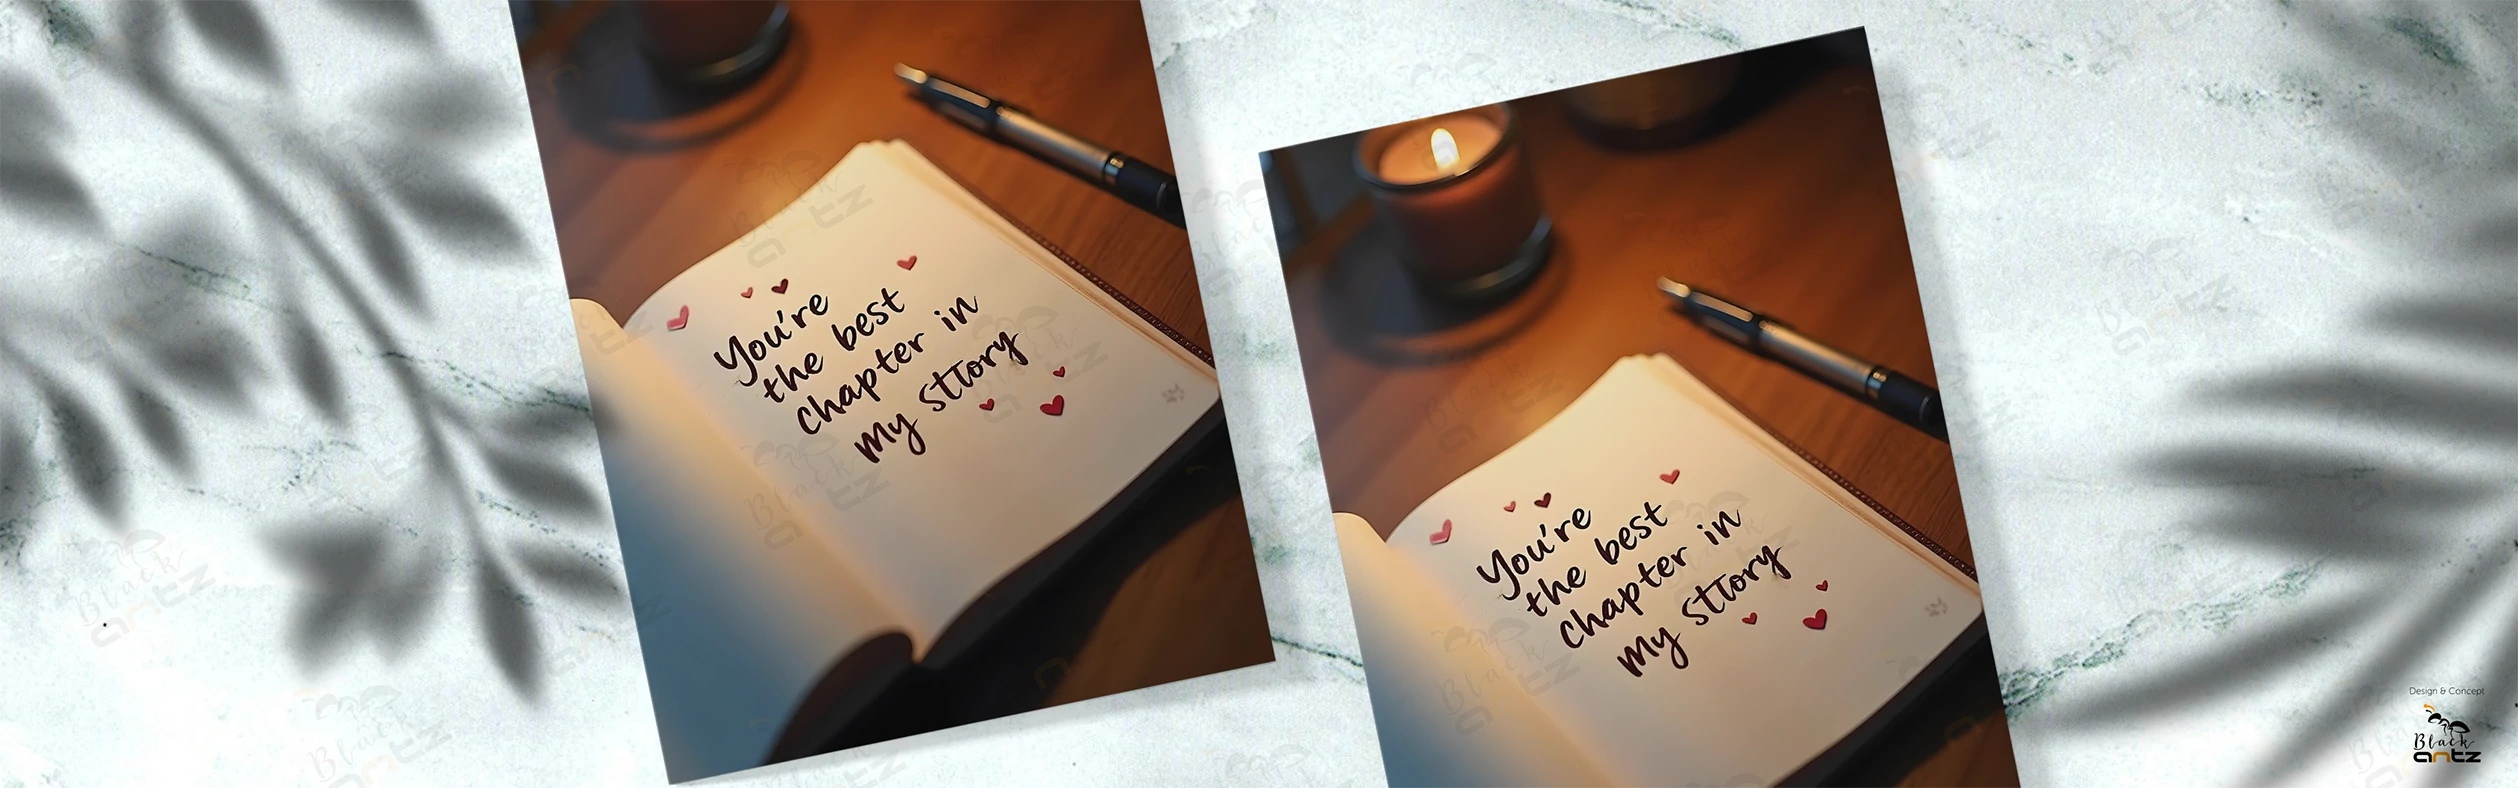 You're
the best
chapter in
my sttory
You're
the best
chapter in
my sttory
Design & Concept
Black
antz